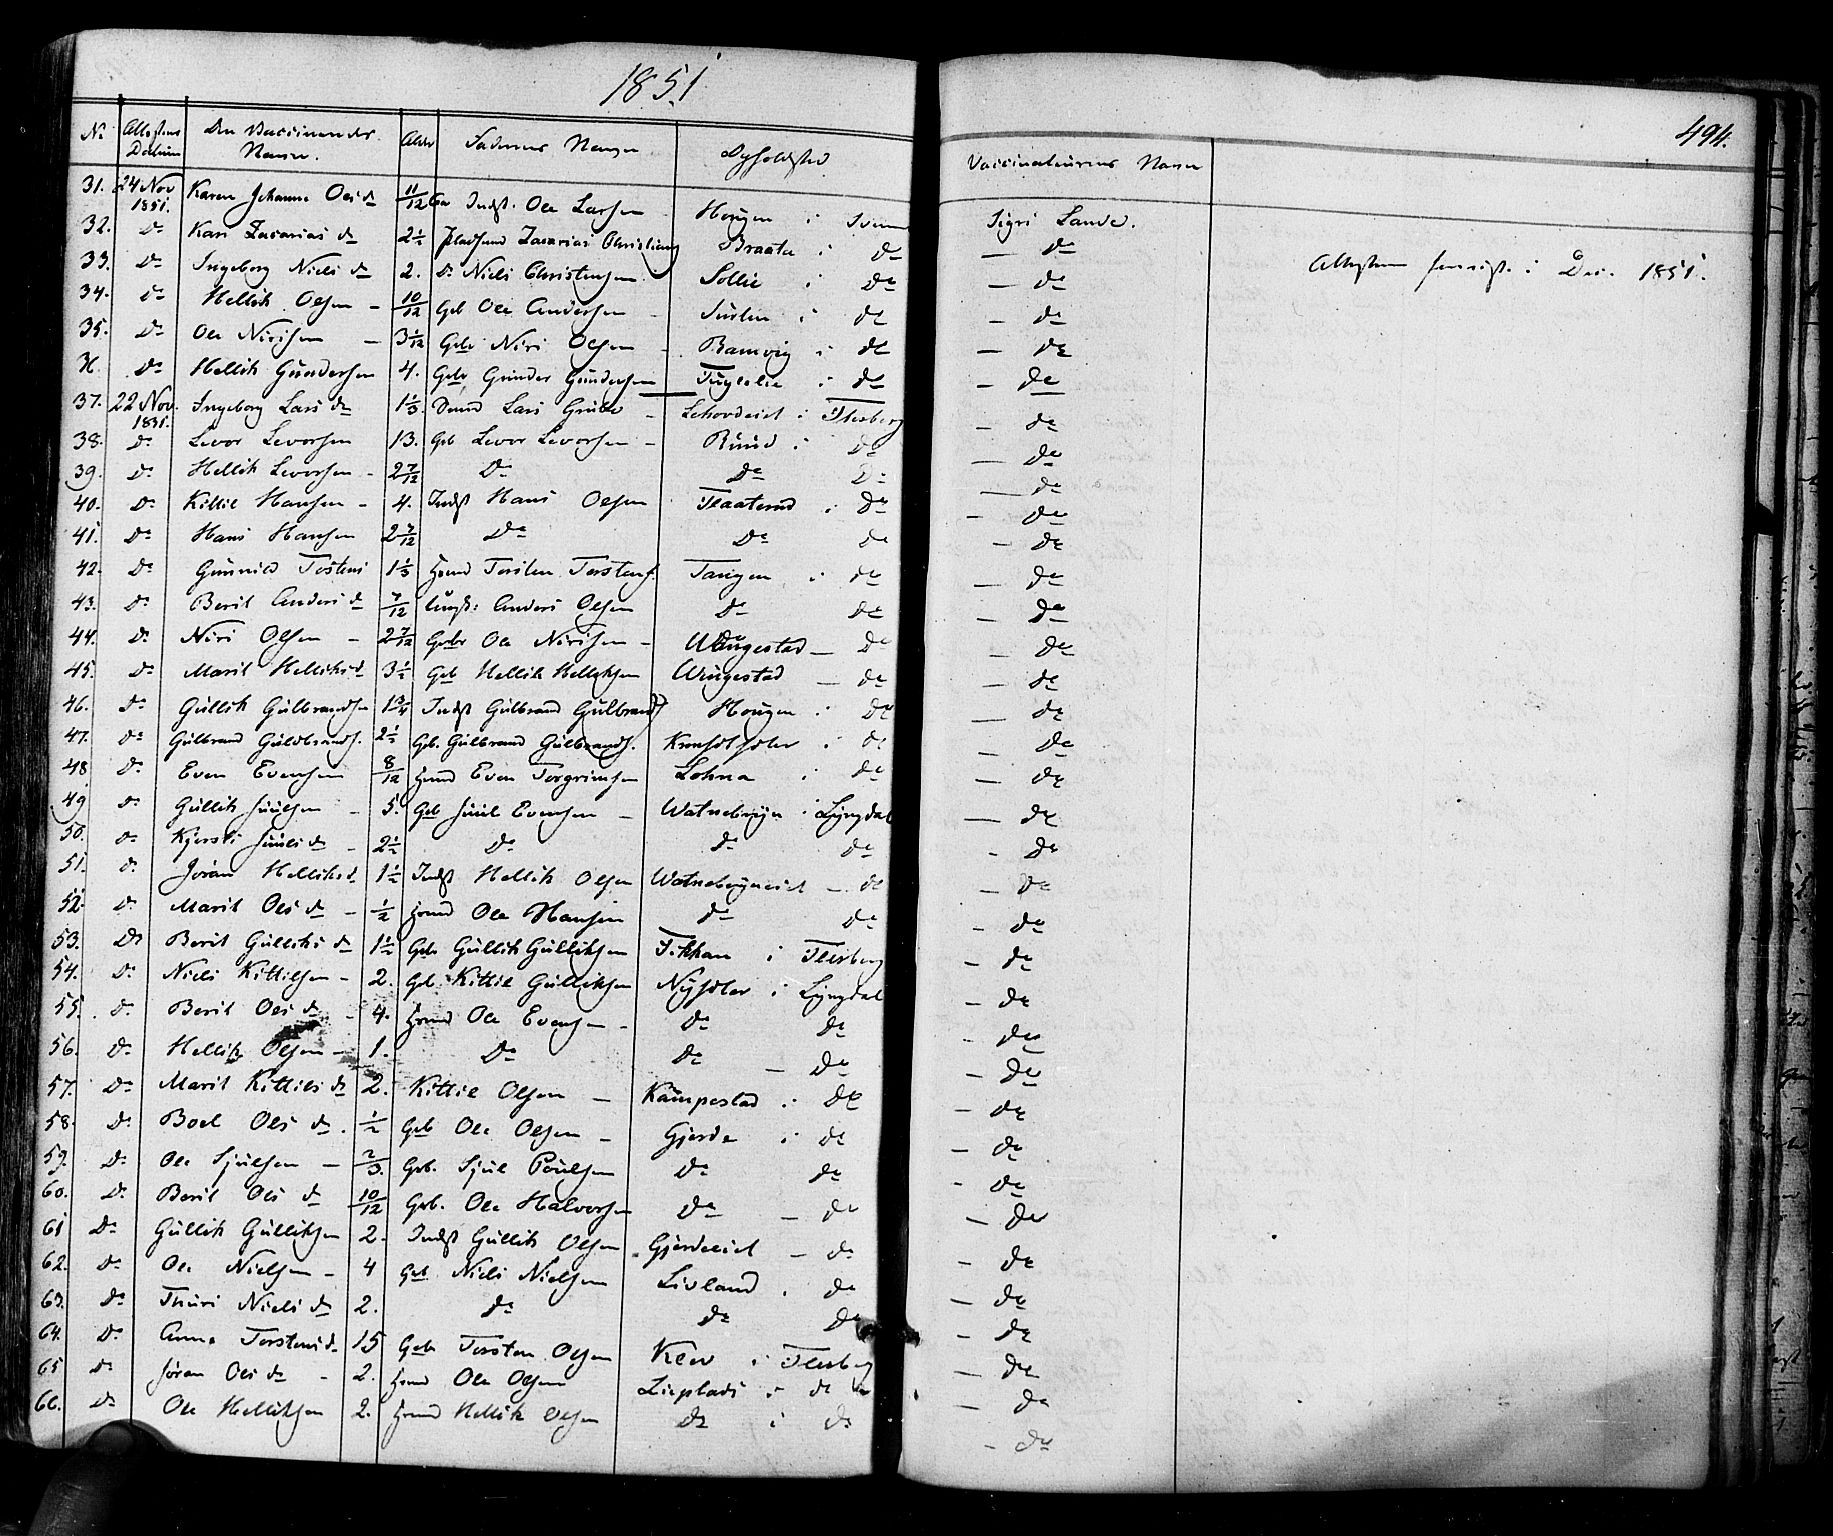 1851
494.
No Attestens Datum Den Vaccineredes Navn. Alder Faderens Navn Opholdsted Vaccinateurens Navn
31. 24 Nov 1851. Karen Johanne Olsd 11/12 Indst. Ole Larsen Hougen i Svene Sigri Lande.
32. Do Kari Zacarias d 2½ Pladsmd Zacarias Christians Braata i do — do
Attesten fremvist i Dec. 1851.
33. Do Ingeborg Niels d 2. Do Niels Christensen Sollie i do — do
34. Do Hellik Olsen – 10/12 Gb Ole Andersen – i do — do
35. Do Ole Nirisen – 3 1/12 Gbr Niri Olsen – Bamvig i do — do
36. Do Hellik Gundersen 4. Gbr Gunder Gundersen i do — do
37. 22 Nov. 1851. Ingeborg Lars d 1⅓ Lars – i Flesberg — do
38. Do Levor Levorsen 13. Gb Levor Levorsen – Ruud i do — do
39. Do Hellik Levorsen – 2 7/12 Do Do Do — do
40. Do Kittil Hansen – 4. Indst Hans Olsen Flaaterud i do – do
41. Do Hans Hansen 2 7/12 Do Do do – do
42. Do Gunnild Tostens 1⅓ Huusmd Torsten Torstens. Tangen i do — do
43. Do Berit Anders d 7/12 Ungk: Anders Olsen Do do – do
44. Do Niri Olsen – 2 7/12 Gbr Ole Nirisen – Wangestad — do — do
45. Do Marit Helliksd 3½ Gb Hellik Helleksen Wangestad — do — do
46. Do Gullik Gulbrandsen 1¾ Indst Gulbrand Gulbrands Hougen i do — do
47. Do Gulbrand Guldbrands. 2½ Gb. Gulbrand Gulbrands. i do – do
48 Do Even Evensen 8/12 Huusmd Even Torgrimsen Lohna i do — do
49 Do Gullik Juulsen – 5. Gb Juul Evensen – Watnebryn i Lyngdal — do
50. Do Kjersti Juuls d – 2½ Do do do – do
51. Do Jøran Helliksd 1½ Indst Hellik Olsen Watnebryneiet – do – do
52 Do Marit Ols d – ½ Huusmd Ole Hansen do do – do
53. Do Berit Gulliks d 1½ Gbr Gullik Gulliksen i Flesberg – do
54. Do Niels Kittilsen – 2. Gb Kittil Gulliksen i Lyngdal – do
55. Do Berit Ols d – 4. Huusmd Ole Evensen – Do do – do
56. Do Hellik Olsen – 1. Do Do – do – do
57. Do Marit Kittils d 2. Kittil Olsen – Kampestad i do – do
58. Do Boel Ols d. ½ Gb Ole Olsen – Gjerde i do – do
59. Do Ole Sjulsen – 2/3. Gb. Sjul Poulsen Do do – do
60. Do Berit Ols d 10/12 Gb. Ole Halvorsen Do – do – do
61 Do Gullik Gulliksen 2. Indst Gullik Olsen Gjerdeeiet – do – do
62. Do Ole Nielsen – 4 Gb Niels Nielsen Livland i do – do
63. Do Thuri Niels d 2. Do do do – do
64. Do Anne Torstensd 15 Gb Torsten Olsen Klev i Flesberg – do
65 Do Jøran Ols d – 2. Huusmd Ole Olsen Lieplads i do – do
66. Do Ole Helliksen 2. Huusmd Hellik Olsen do i do – do